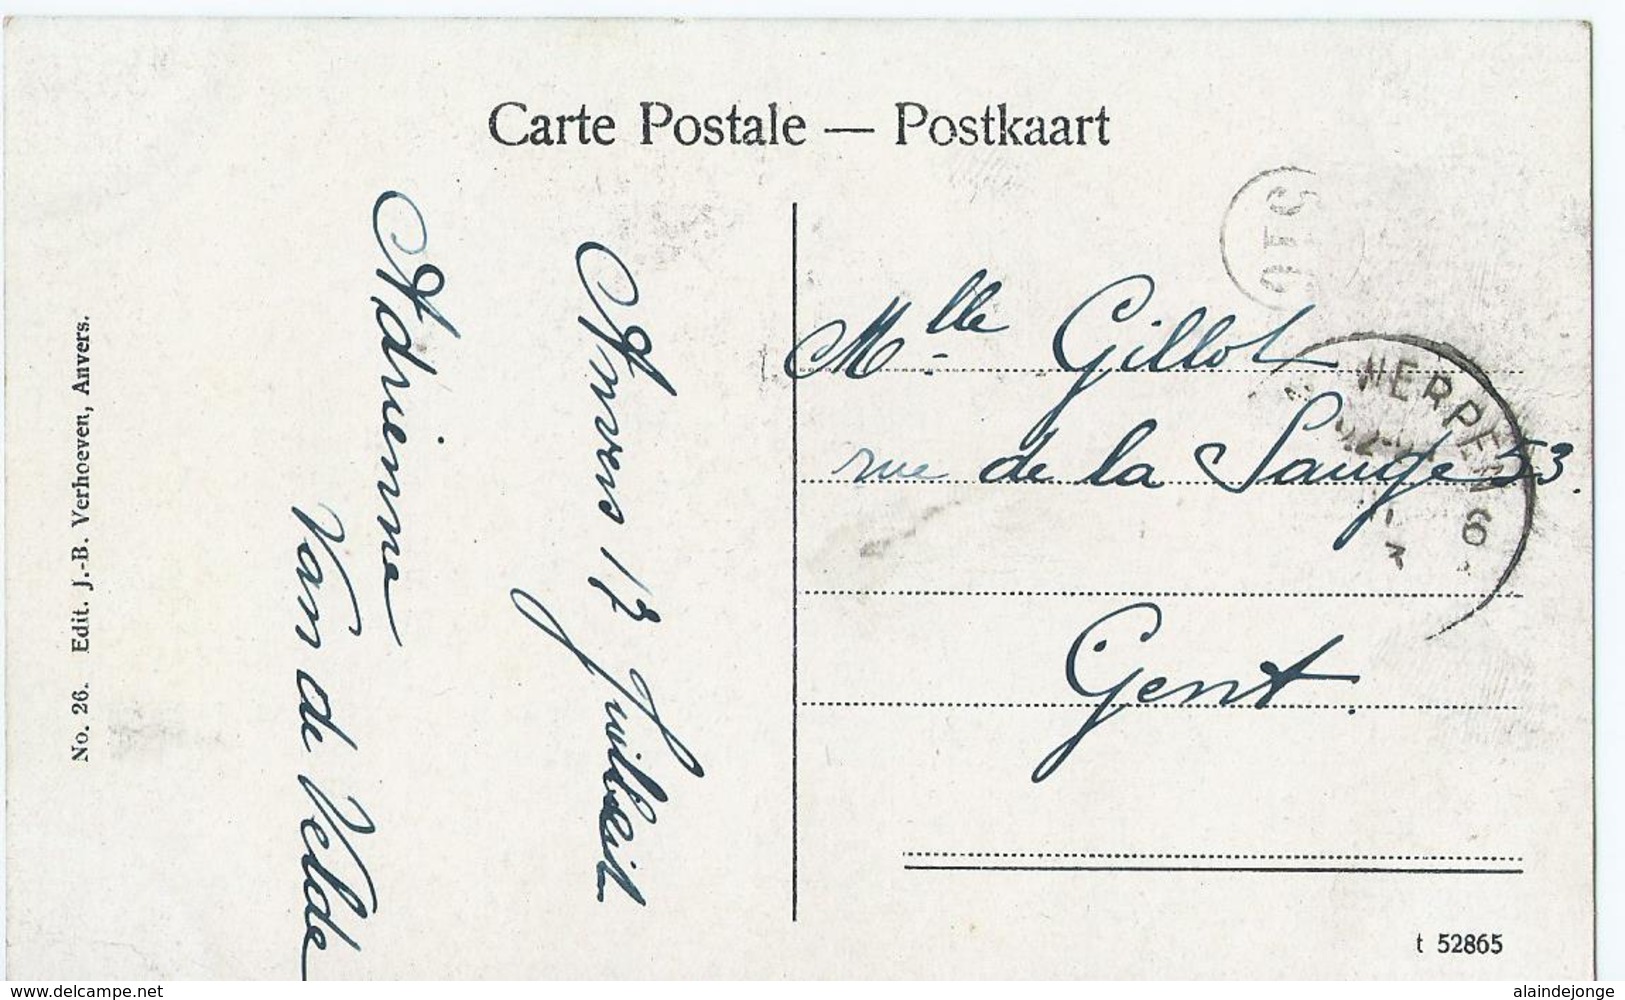 Carte Postale — Postkaart
No. 26. Edit. J.-B. Verhoeven, Anvers.
Anvers 17 Juillet
Adrienne
Van de Velde
Mlle. Gillot
rue de la Sauge 53.
Gent.
NERPEN
6
t 52865
www.delcampe.net
alaindejonge